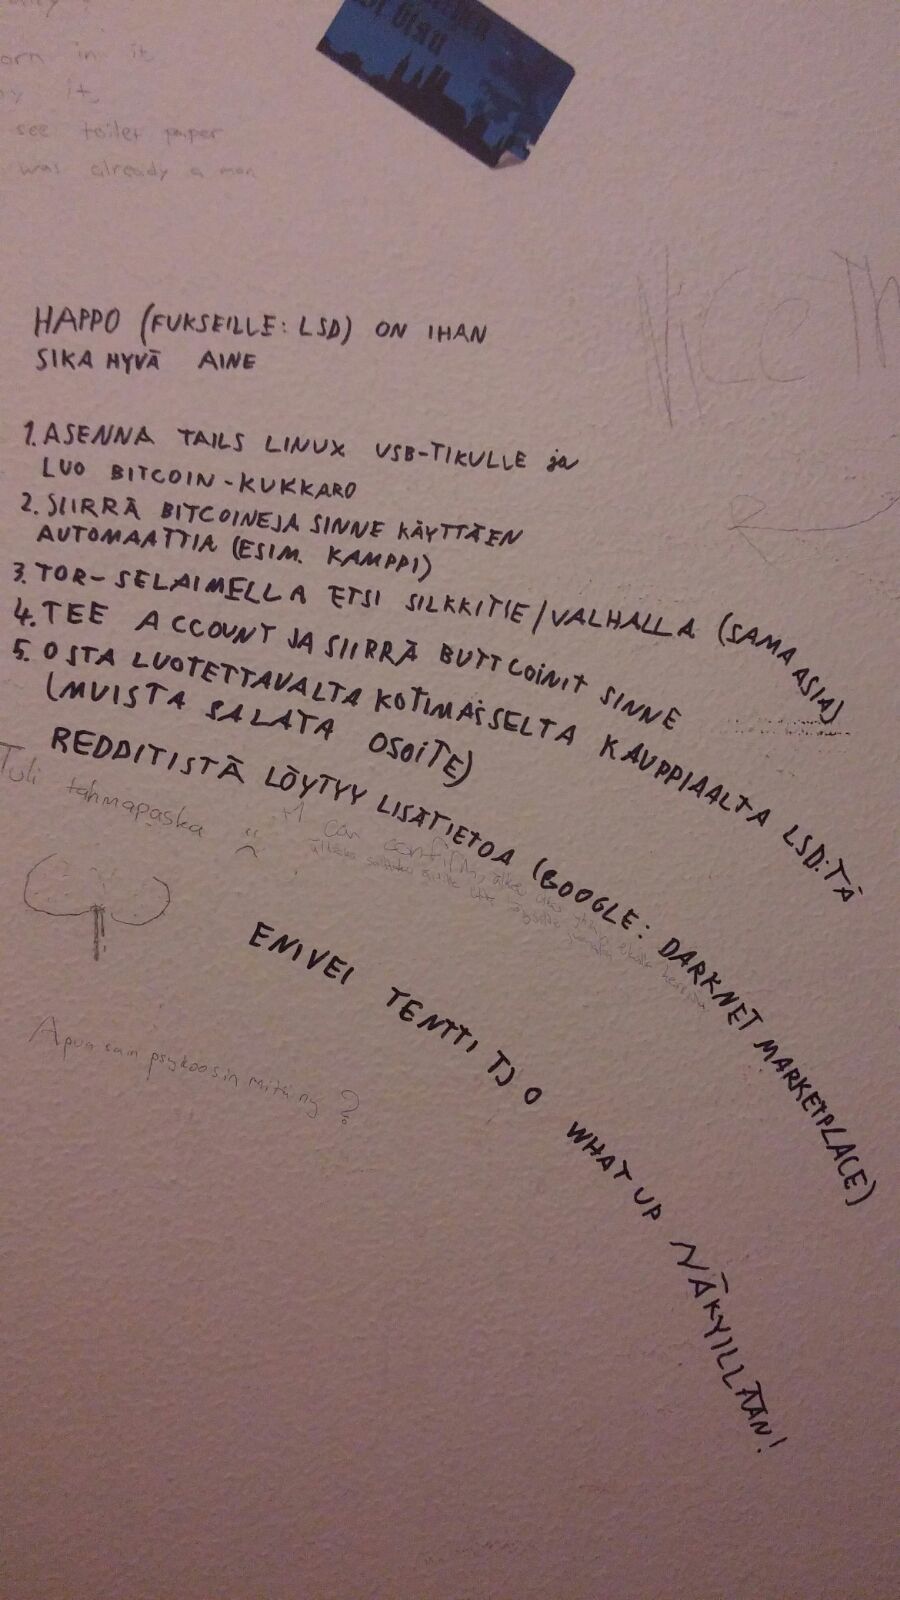 orn in it
it,
see toilet paper
was already a man
NICE
HAPPO (FUKSEILLE: LSD) ON IHAN
SIKA HYVÄ AINE
1. ASENNA TAILS LINUX USB-TIKULLE ja
LUO BITCOIN-KUKKARO
2. SIIRRÄ BITCOINEJA SINNE KÄYTTÄEN
AUTOMAATTIA (ESIM. KAMPPI)
3. TOR-SELAIMELLA ETSI SILKKITIE/VALHALLA (SAMA ASIA)
4. TEE ACCOUNT JA SIIRRÄ BUTTCOINIT SINNE
5. OSTA LUOTETTAVALTA KOTIMAISSELTA KAUPPIAALTA LSD:TÄ
(MUISTA SALATA OSOITE)
REDDITISTÄ LÖYTYY LISÄTIETOA (GOOGLE: DARKNET MARKETPLACE)
Tuli tahmapaska
+1 can confirm,
ENIVEI TENTTI TJ 0 WHAT UP NÄKYILLÄÄN!
Apua sain psykoosin mitä ny?